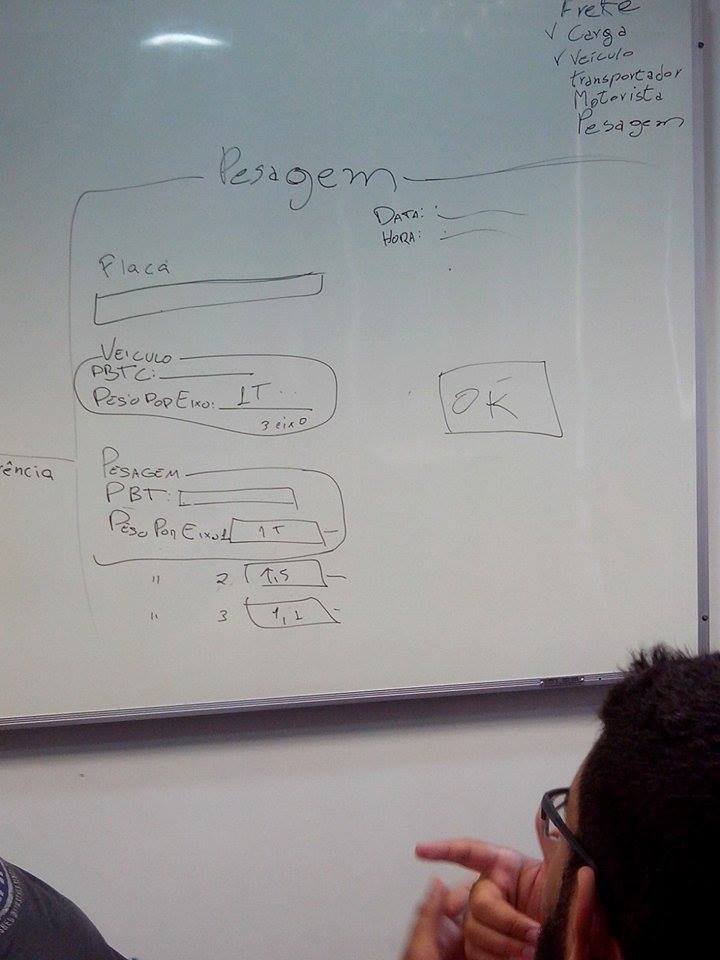 Frete
√ Carga
√ Veículo
transportador
Motorista
Pesagem
Pesagem
DATA:
HORA:
Placa
VEICULO
PBTC:
PESO POR EIXO: 1T
3 eixo
rência
PESAGEM
PBT:
PESO POR EIXO 1 1T
" 2 1,5
" 3 1,1
OK